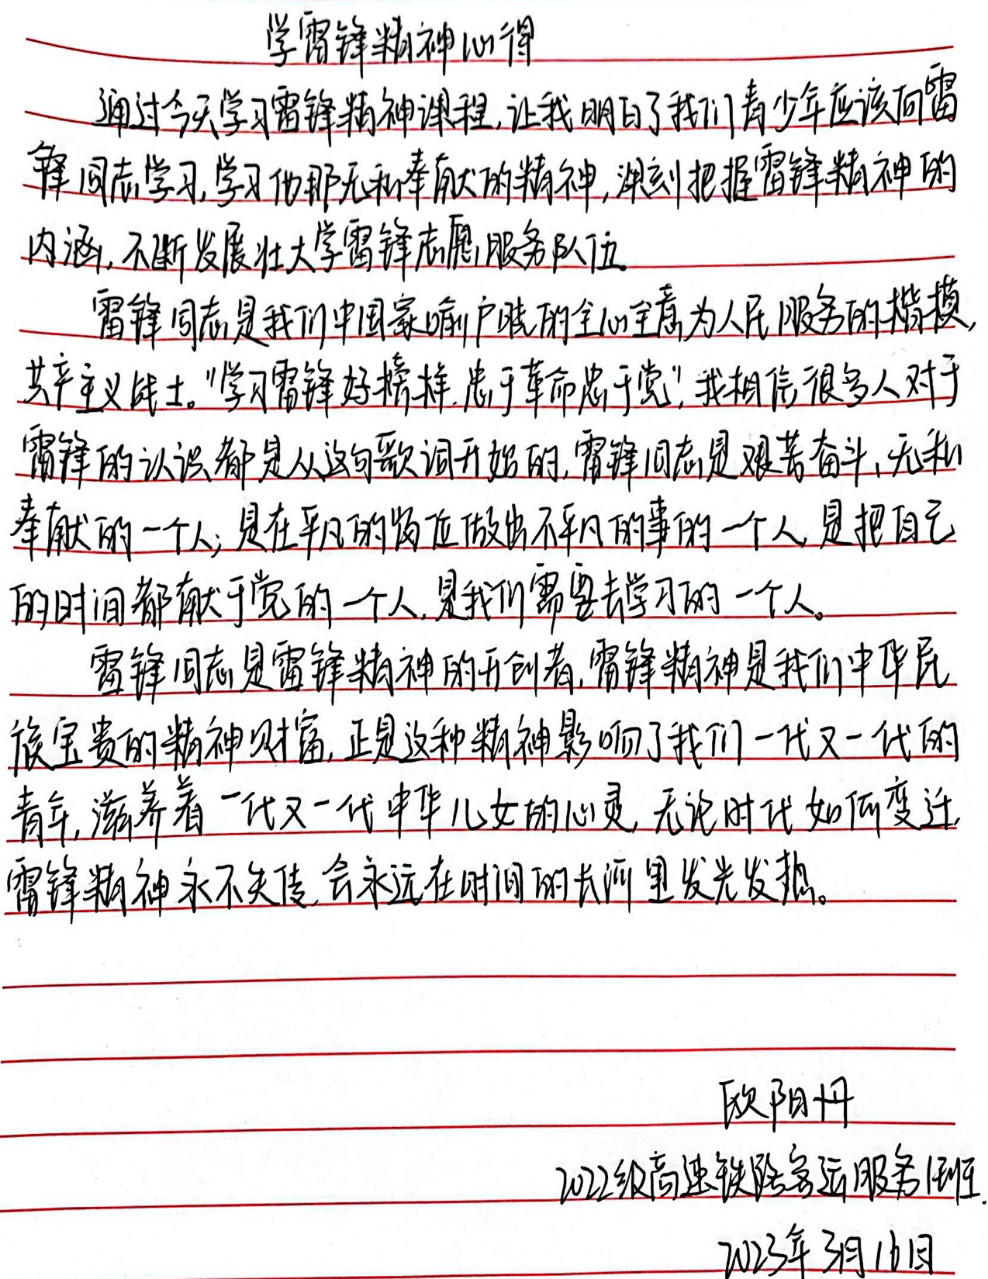 学雷锋精神心得
通过今天学习雷锋精神课程,让我明白了我们青少年应该向雷
锋同志学习,学习他那无私奉献的精神,深刻把握雷锋精神的
内涵,不断发展壮大学雷锋志愿服务队伍
雷锋同志是我们中国家喻户晓的全心全意为人民服务的楷模,
共产主义战士。"学习雷锋好榜样,忠于革命忠于党",我相信很多人对于
雷锋的认识都是从这句歌词开始的,雷锋同志是艰苦奋斗、无私
奉献的一个人;是在平凡的岗位做出不平凡的事的一个人,是把自己
的时间都献于党的一个人,是我们需要去学习的一个人。
雷锋同志是雷锋精神的开创者,雷锋精神是我们中华民
族宝贵的精神财富,正是这种精神影响了我们一代又一代的
青年,滋养着一代又一代中华儿女的心灵,无论时代如何变迁,
雷锋精神永不失传,会永远在时间的长河里发光发热。
欧阳丹
2022级高速铁路客运服务1班.
2023年3月16日